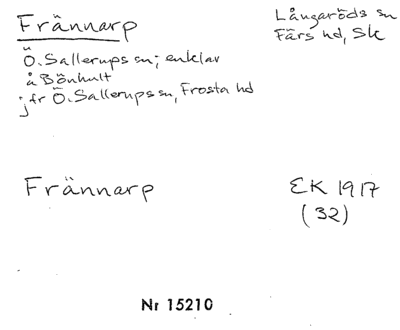 Frännarp
Långaröds sn
Färs hd, Sk
Ö. Sallerups sn; enklav
å Bönhult
jfr Ö. Sallerups sn, Frosta hd
Frännarp
EK 1917
(32)
Nr 15210